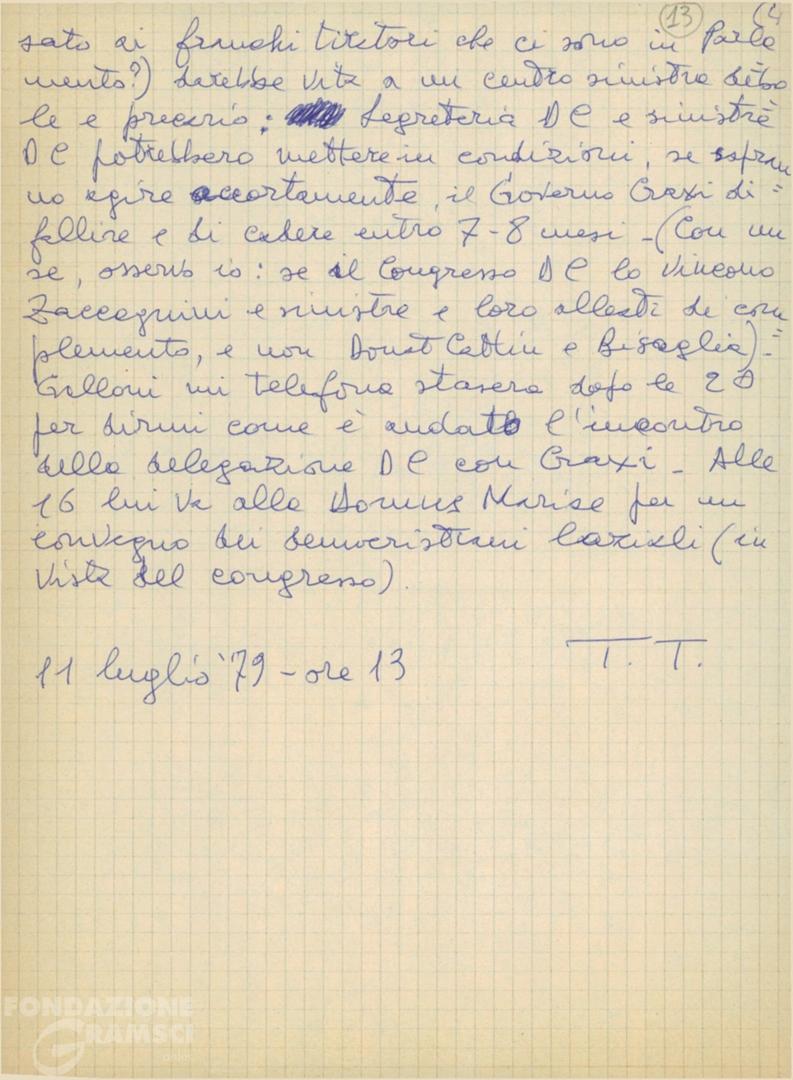 13 (4
sato ai franchi tiratori che ci sono in Parla
mento?) darebbe vita a un centro sinistra debo=
le e precario: Segreteria DC e sinistre
DC potrebbero mettere in condizioni, se sapran
no agire accortamente, il Governo Craxi di =
fallire e di cadere entro 7-8 mesi - (Con un
se, osservo io: se il Congresso DC lo vincono
Zaccagnini e sinistre e loro alleati di com
plemento, e non Donat Cattin e Bisaglia). =
Galloni mi telefona stasera dopo le 20
per dirmi come è andato l'incontro
della delegazione DC con Craxi - Alle
16 lui va alla Domus Mariae per un
convegno dei democristiani laziali (in
vista del congresso).
11 luglio '79 - ore 13 T. T.
FONDAZIONE
GRAMSCI